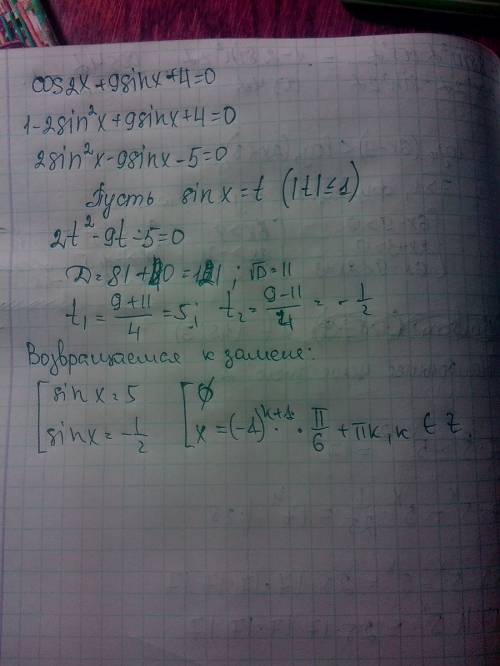 cos2x+9sinx+4=0
1-2sin²x+9sinx+4=0
2sin²x-9sinx-5=0
Пусть sinx=t (|t|≤1)
2t²-9t-5=0
D=81+40=121; √D=11
t₁=(9+11)/4=5; t₂=(9-11)/4=-1/2
Возвращаемся к замене:
[sinx=5 [∅
[sinx=-1/2 [x=(-1)^(k+1)·π/6+πk, k∈Z.